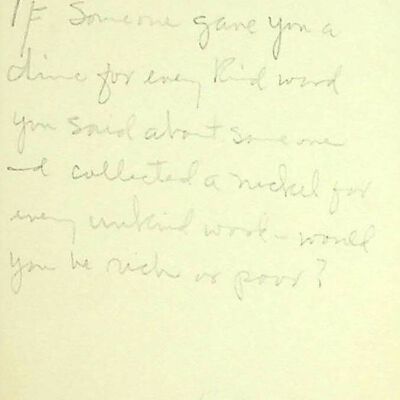 If Someone gave you a
dime for every Kind word
you said about someone
and collected a nickel for
every unkind word - would
you be rich or poor?